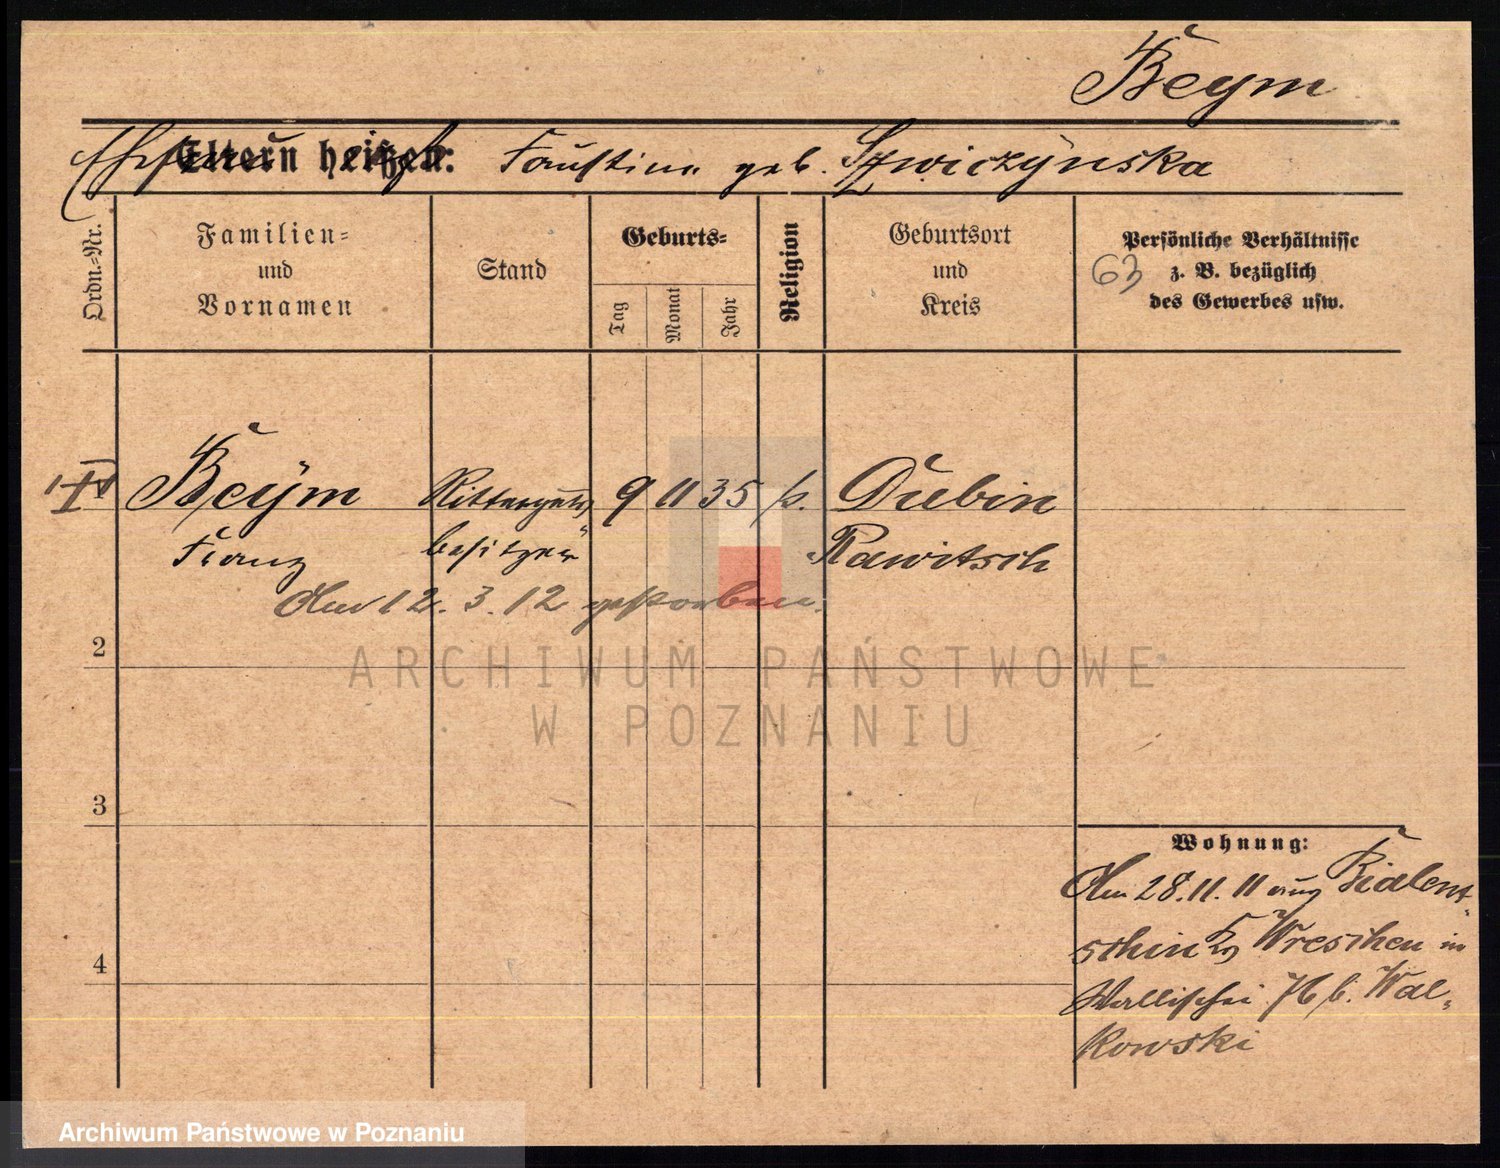 Beym
Eltern heißen: Ehefrau hieß Faustina geb. Szwiczynska
Ordn.-Nr.
Familien=
und
Vornamen
Stand
Geburts=
Tag
Monat
Jahr
Religion
Geburtsort
und
Kreis
Persönliche Verhältnisse
z. B. bezüglich
des Gewerbes usw.
63
1 Beym Ritterguts 9 11 35 k. Dubin
Franz besitzer Rawitsch
Am 12. 3. 12 gestorben.
2
3
4
Wohnung:
Am 28.11.11 aus Bialent-
schin Kr. Wreschen in
Wallischei 76 b. Wal-
kowski
ARCHIWUM PAŃSTWOWE
W POZNANIU
Archiwum Państwowe w Poznaniu